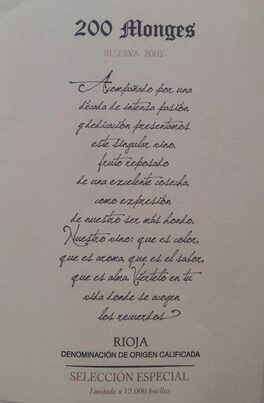 200 Monges
RESERVA 2005
Acompañado por una
década de intensa pasión
y dedicación presentamos
este singular vino,
fruto reposado
de una excelente cosecha,
como expresión
de nuestro ser más hondo.
Nuestro vino: que es color,
que es aroma, que es el sabor,
que es alma. Viértelo en tu
vida donde se acogen
los recuerdos
RIOJA
DENOMINACIÓN DE ORIGEN CALIFICADA
SELECCIÓN ESPECIAL
Limitada a 12.000 botellas